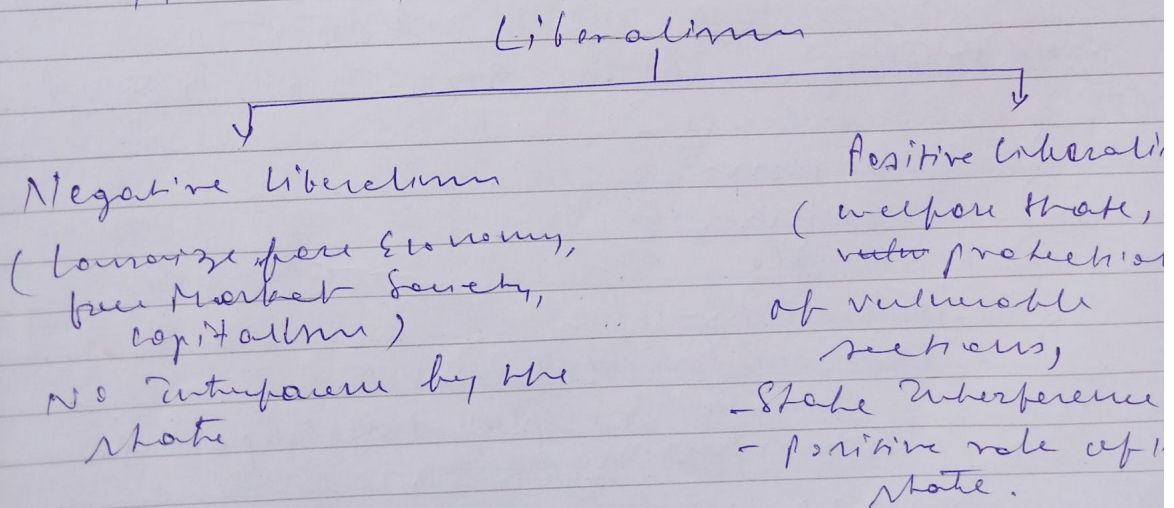 Liberalism
Negative Liberalism
( faire Economy,
free Market Society,
capitalism)
No Interference by the
state
Positive Liberali
( welfare state,
protection
of vulnerable
sections,
- State Interference
- positive role of
state.